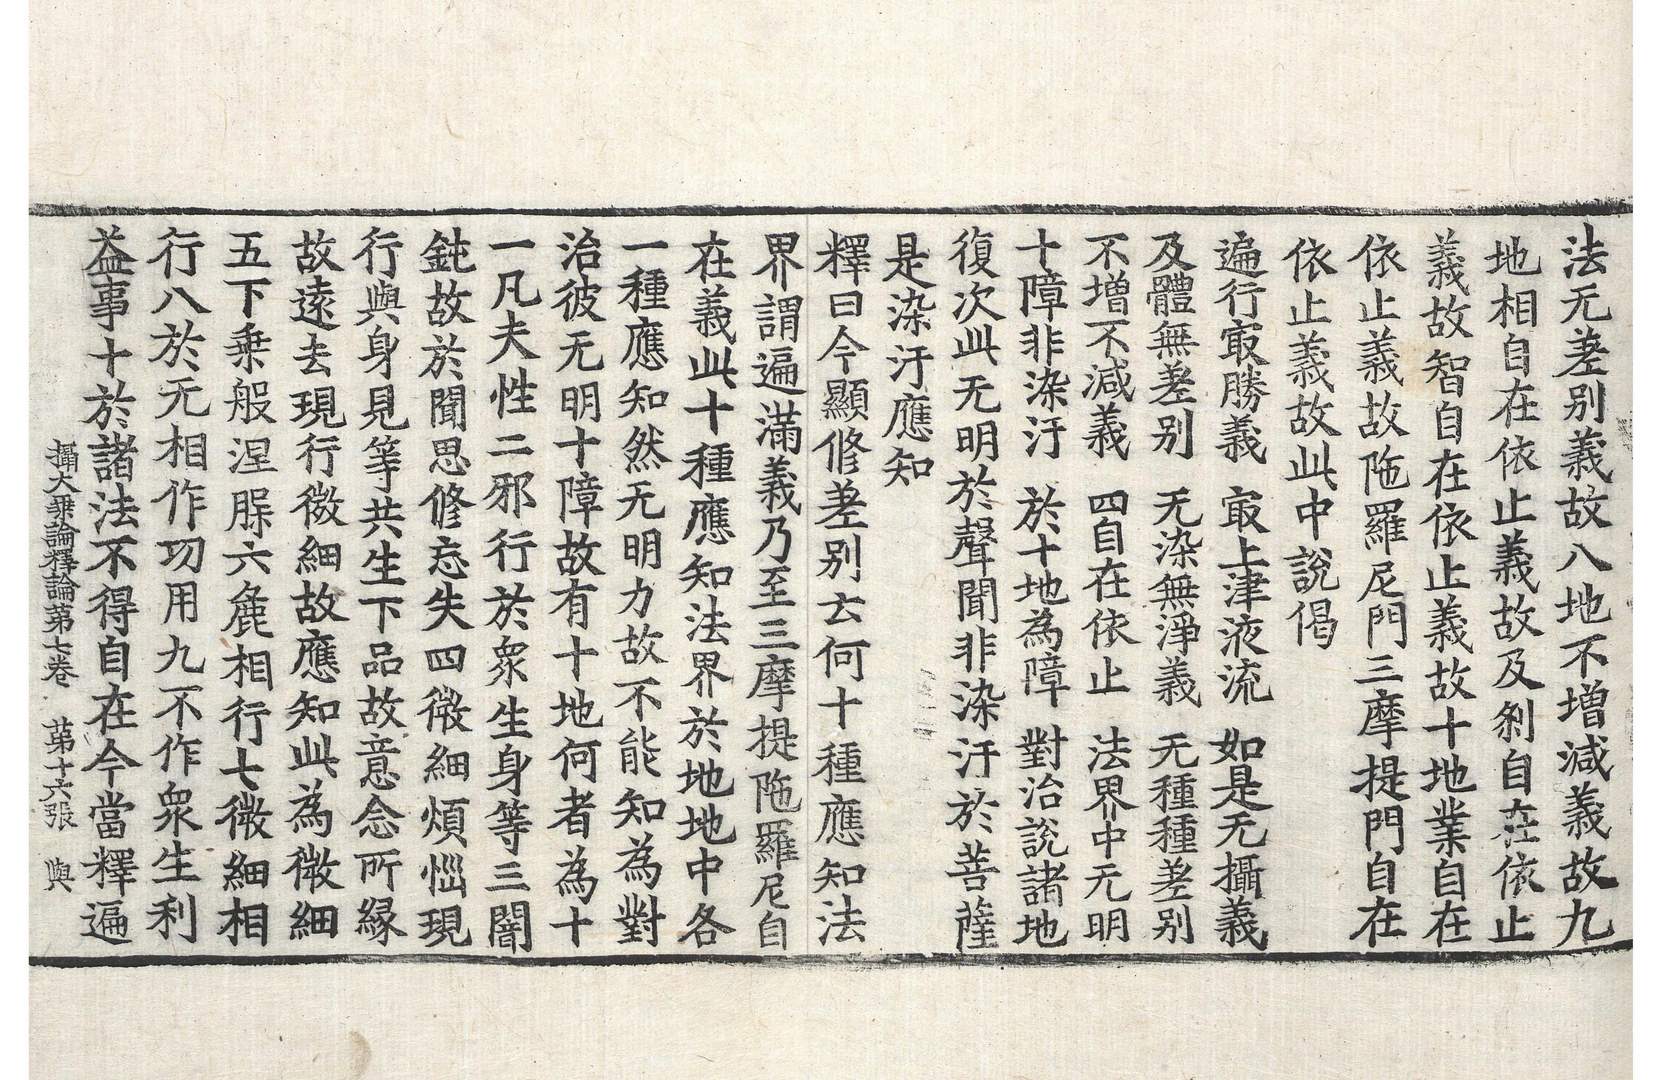 法无差別義故八地不增減義故九
地相自在依止義故及刹自在依止
義故智自在依止義故十地業自在
依止義故陁羅尼門三摩提門自在
依止義故此中說偈
遍行㝡勝義　㝡上津液流　如是无攝義
及體無差別　无染無淨義　无種種差別
不增不減義　四自在依止　法界中无明
十障非染汙　於十地為障　對治說諸地
復次此无明於聲聞非染汙於菩薩
是染汙應知
釋曰今顯修差別云何十種應知法
界謂遍滿義乃至三摩提陁羅尼自
在義此十種應知法界於地地中各
一種應知然无明力故不能知為對
治彼无明十障故有十地何者為十
一凡夫性二邪行於衆生身等三闇
鈍故於聞思修忘失四微細煩惱現
行與身見等共生下品故意念所緣
故遠去現行微細故應知此為微細
五下乗般涅槃六麁相行七微細相
行八於无相作功用九不作衆生利
益事十於諸法不得自在今當釋遍
攝大乗論釋論第七卷　第十六張　與